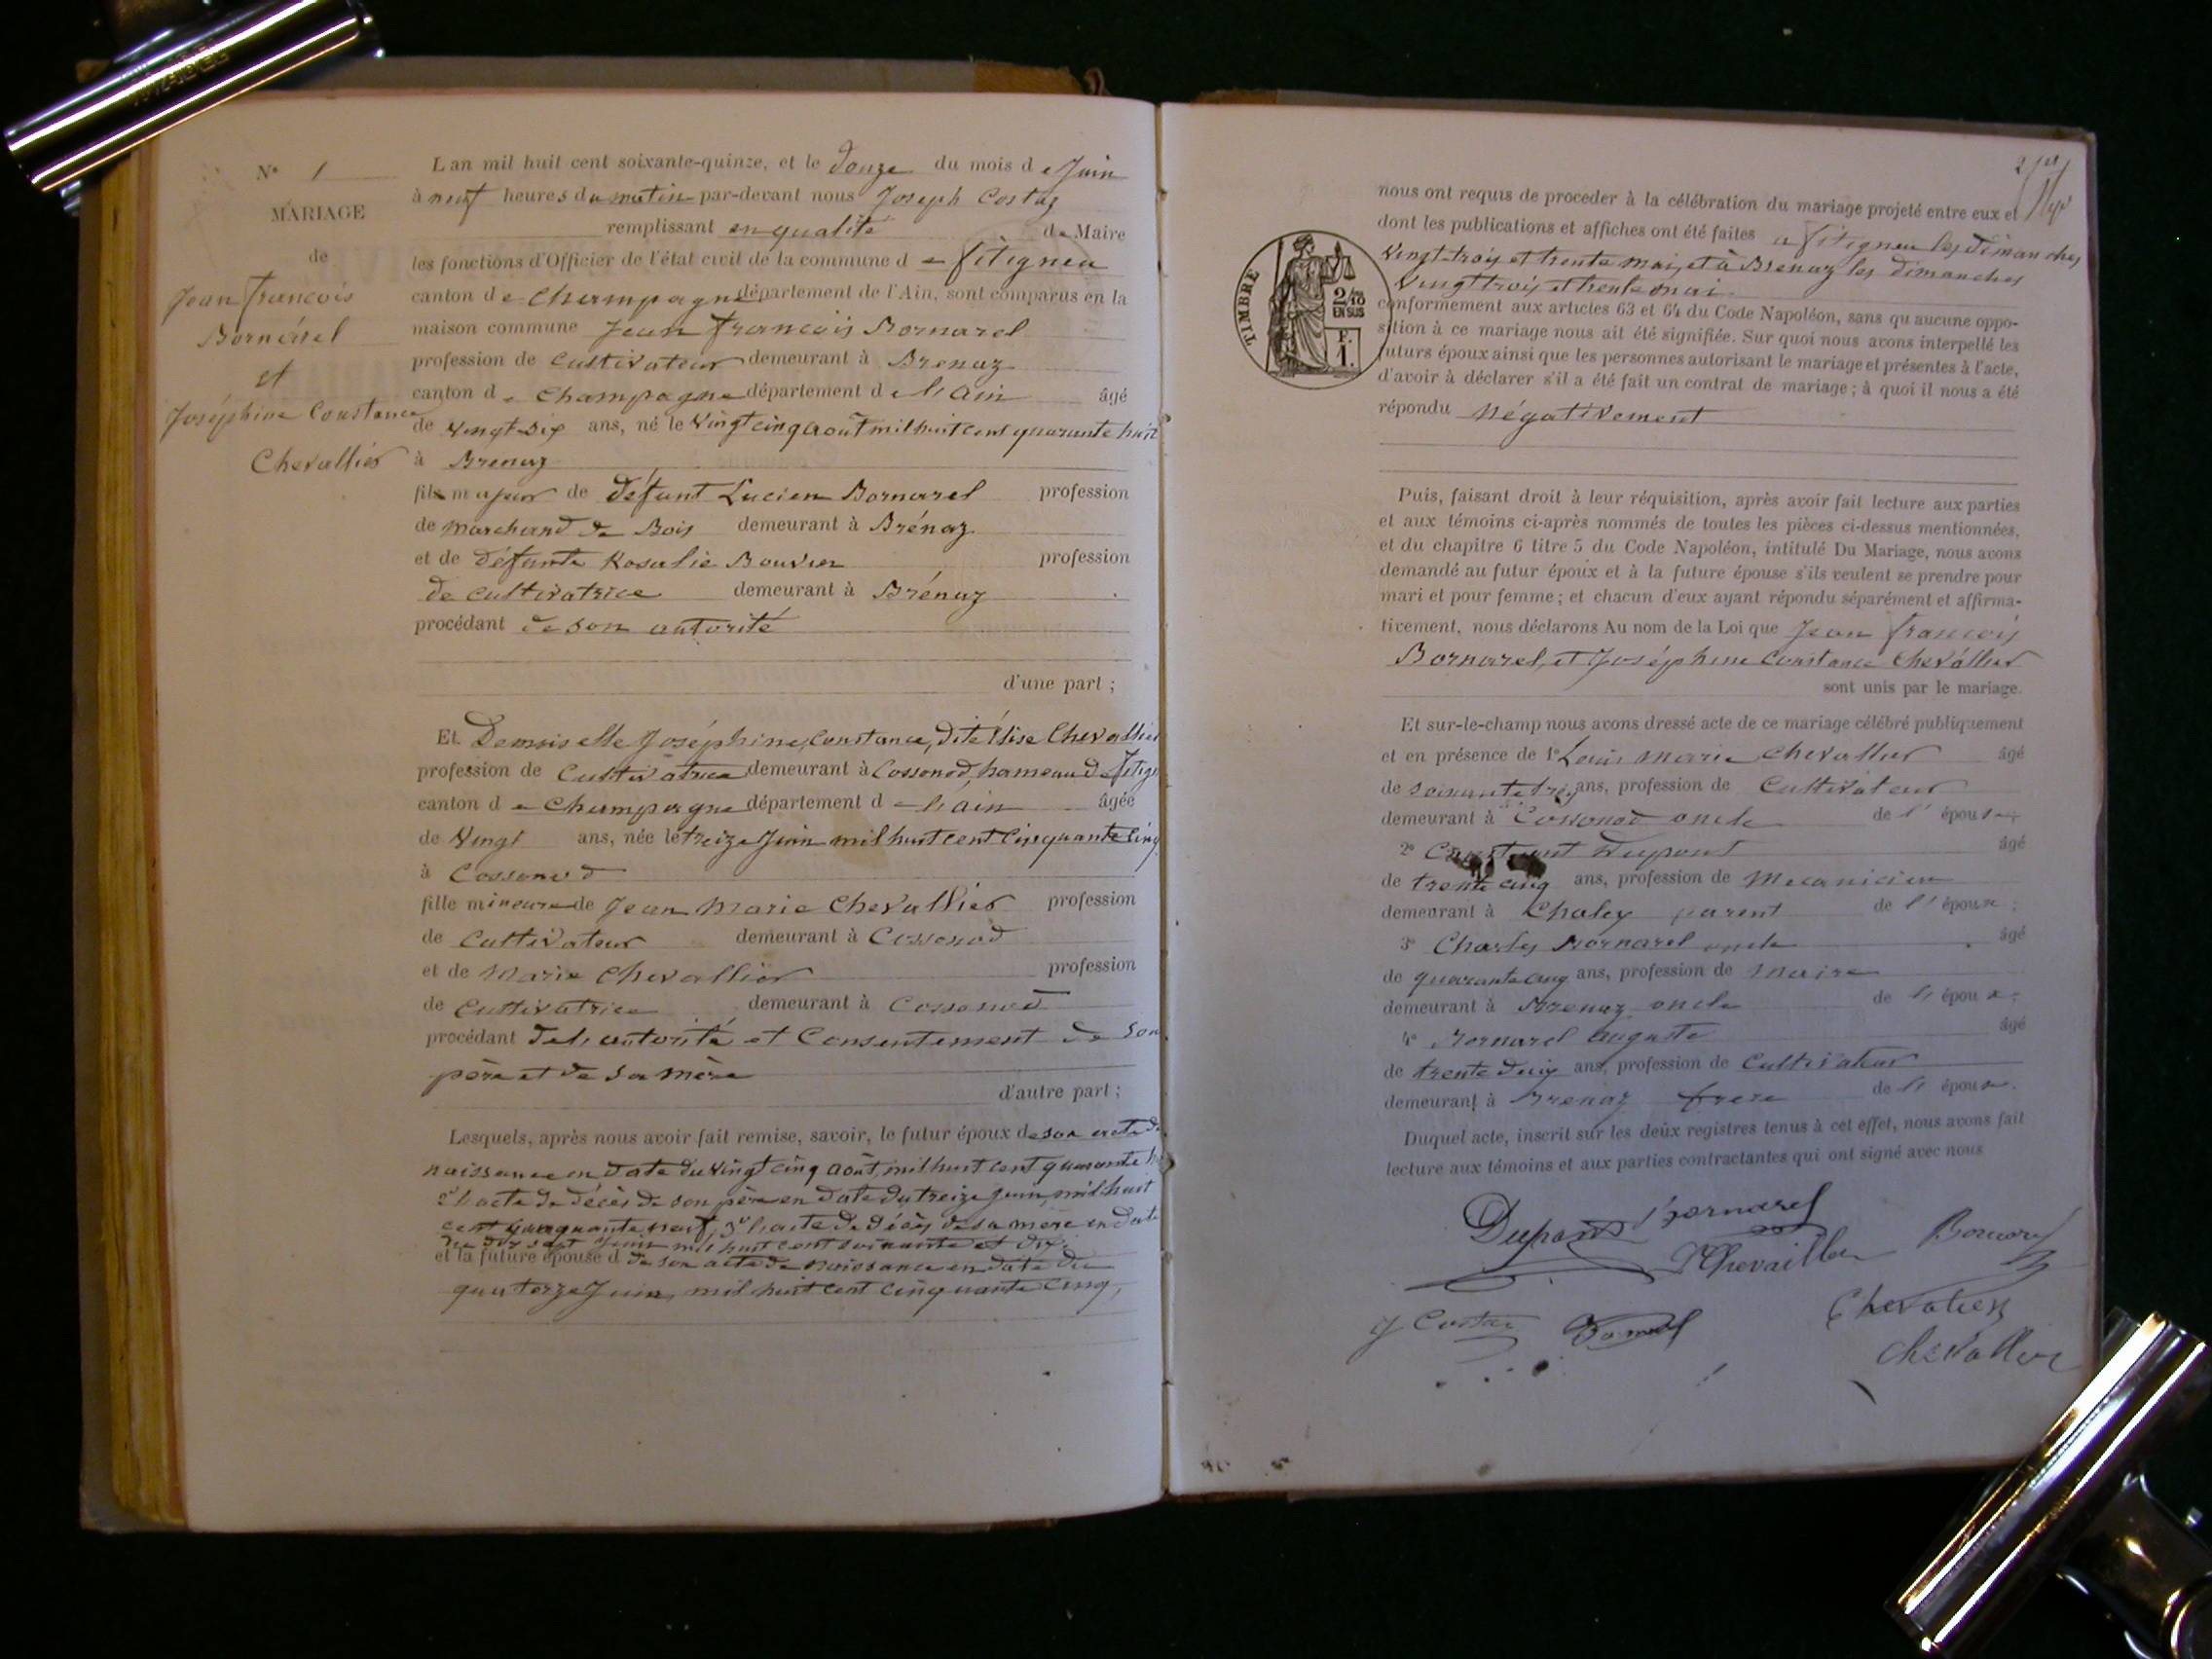 N° 1
MARIAGE
de
Jean francois
Bornarel
et
Joséphine Constance
Chevallier
L an mil huit cent soixante-quinze, et le douze du mois de Juin
à neuf heures du matin par-devant nous Joseph Costaz
remplissant en qualité de Maire
les fonctions d'Officier de l'état civil de la commune de fitignieu
canton de Champagne département de l'Ain, sont comparus en la
maison commune Jean francois Bornarel
profession de Cultivateur demeurant à Brenaz
canton de Champagne département de l'Ain âgé
de vingt-six ans, né le vingt cinq août mil huit cent quarante huit
à Brenaz
fils majeur de défunt Lucien Bornarel profession
de marchand de Bois demeurant à Brénaz
et de défunte Rosalie Bouvier profession
de cultivatrice demeurant à Brénaz
procédant de son autorité
d'une part ;
Et Demoiselle Joséphine, Constance, dite Elise Chevallier
profession de Cultivatrice demeurant à Cossonod, hameau de
canton de Champagne département de l'ain âgée
de Vingt ans, née le treize Juin mil huit cent cinquante cinq
à Cossonod
fille mineure de Jean Marie Chevallier profession
de Cultivateur demeurant à Cossonod
et de Marie Chevallier profession
de Cultivatrice demeurant à Cossonod
procédant de l'autorité et Consentement de son
père et de sa mère
d'autre part ;
Lesquels, après nous avoir fait remise, savoir, le futur époux de son acte de
naissance en date du vingt cinq août, mil huit cent quarante
2° l'acte de décès de son père en date du treize juin, mil huit
cent cinquante neuf, 3° l'acte de décès de sa mère en date
du dix sept juin mil huit cent soixante et dix
et la future épouse de son acte de naissance en date du
quatorze Juin, mil huit cent cinquante cinq,
nous ont requis de procéder à la célébration du mariage projeté entre eux et
dont les publications et affiches ont été faites a fitignieu les dimanches
vingt-trois et trente mai, et à Brenaz les dimanches
vingt trois et trente mai
TIMBRE
2/10
EN SUS
F.
1.
conformément aux articles 63 et 64 du Code Napoléon, sans qu'aucune oppo-
sition à ce mariage nous ait été signifiée. Sur quoi nous avons interpellé les
futurs époux ainsi que les personnes autorisant le mariage et présentes à l'acte,
d'avoir à déclarer s'il a été fait un contrat de mariage ; à quoi il nous a été
répondu négativement
Puis, faisant droit à leur réquisition, après avoir fait lecture aux parties
et aux témoins ci-après nommés de toutes les pièces ci-dessus mentionnées,
et du chapitre 6 titre 5 du Code Napoléon, intitulé Du Mariage, nous avons
demandé au futur époux et à la future épouse s'ils veulent se prendre pour
mari et pour femme ; et chacun d'eux ayant répondu séparément et affirma-
tivement, nous déclarons Au nom de la Loi que Jean francois
Bornarel, et Joséphine Constance Chevallier
sont unis par le mariage.
Et sur-le-champ nous avons dressé acte de ce mariage célébré publiquement
et en présence de 1° Louis Marie Chevallier âgé
de soixante trois ans, profession de Cultivateur
demeurant à Cossonod oncle de l' épouse
2° Constant Dupont âgé
de trente cinq ans, profession de Mecanicien
demeurant à Chaley parent de l' époux ;
3° Charles Bornarel oncle âgé
de quarante cinq ans, profession de Maire
demeurant à Brenaz oncle de l' époux ;
4° Bornarel Auguste âgé
de trente deux ans, profession de Cultivateur
demeurant à Brenaz frere de l' époux.
Duquel acte, inscrit sur les deux registres tenus à cet effet, nous avons fait
lecture aux témoins et aux parties contractantes qui ont signé avec nous
Dupont Bornarel
Chevaillier
J Costaz
Chevalier
chevallier